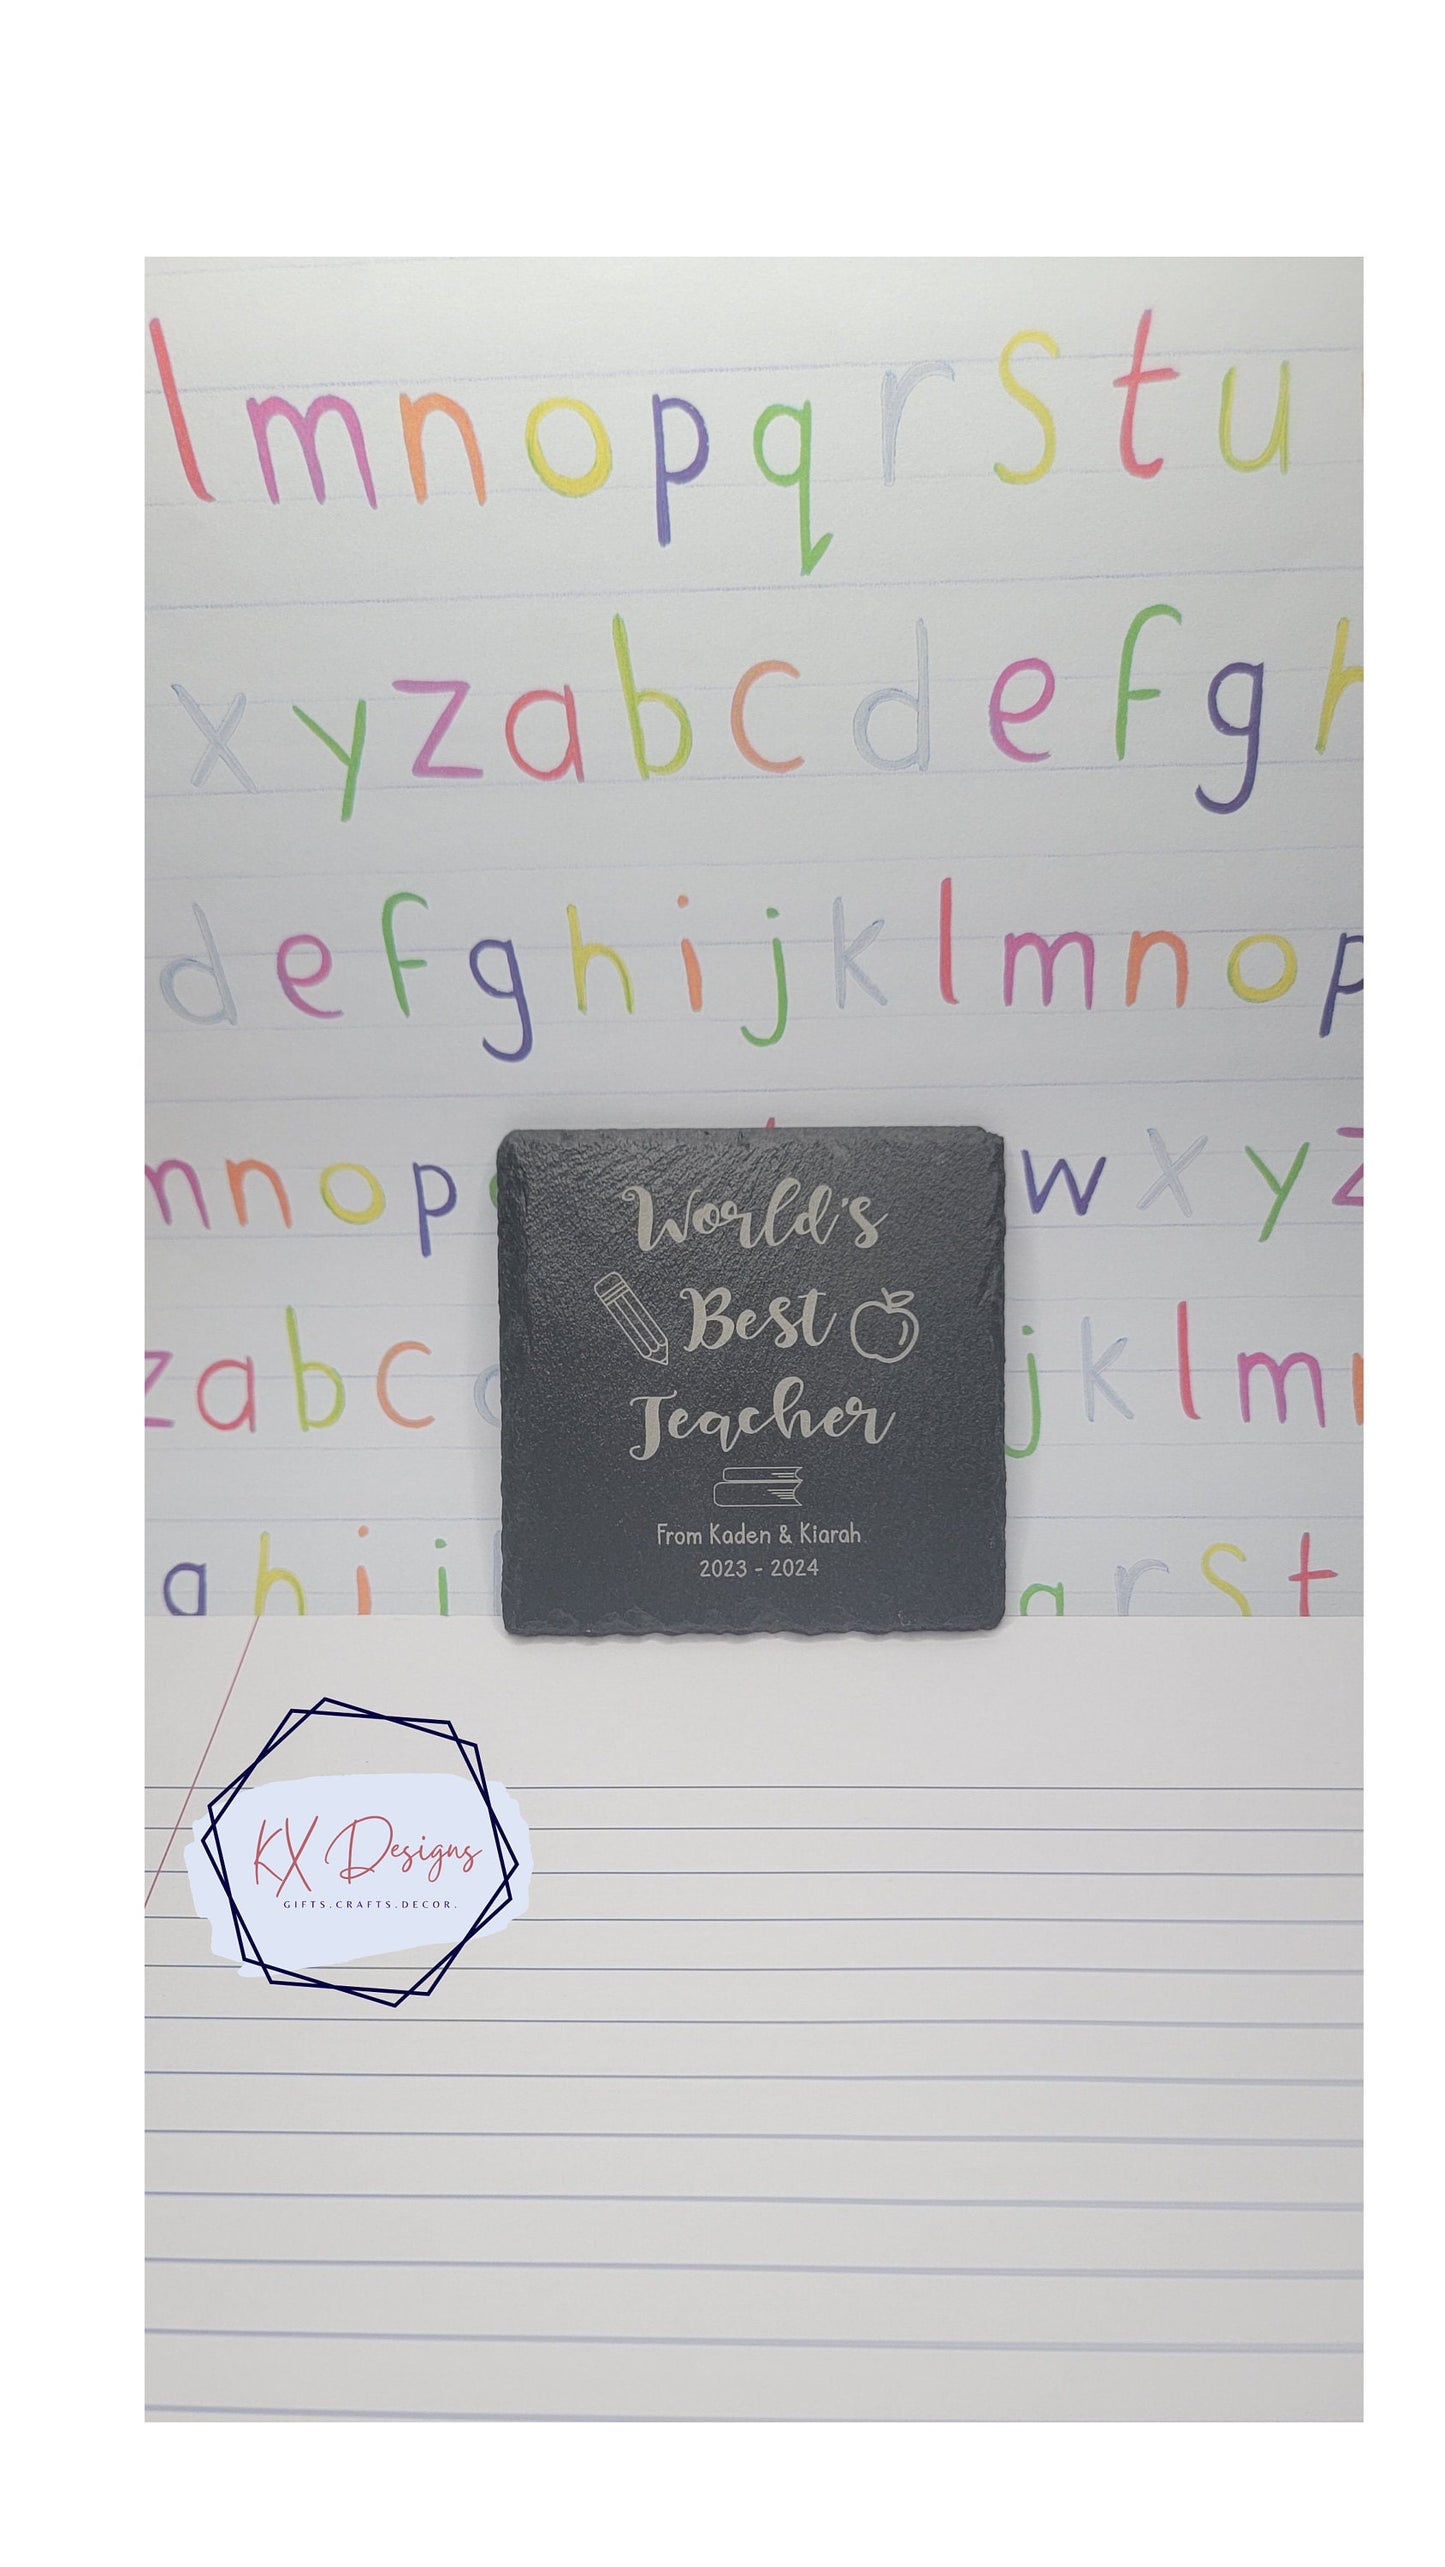 l m n o p q r s t u
x y z a b c d e f g h
d e f g h i j k l m n o p
m n o p w x y z
z a b c j k l m
g h i j q r s t
World's
Best
Teacher
From Kaden & Kiarah
2023 - 2024
KX Designs
GIFTS.CRAFTS.DECOR.